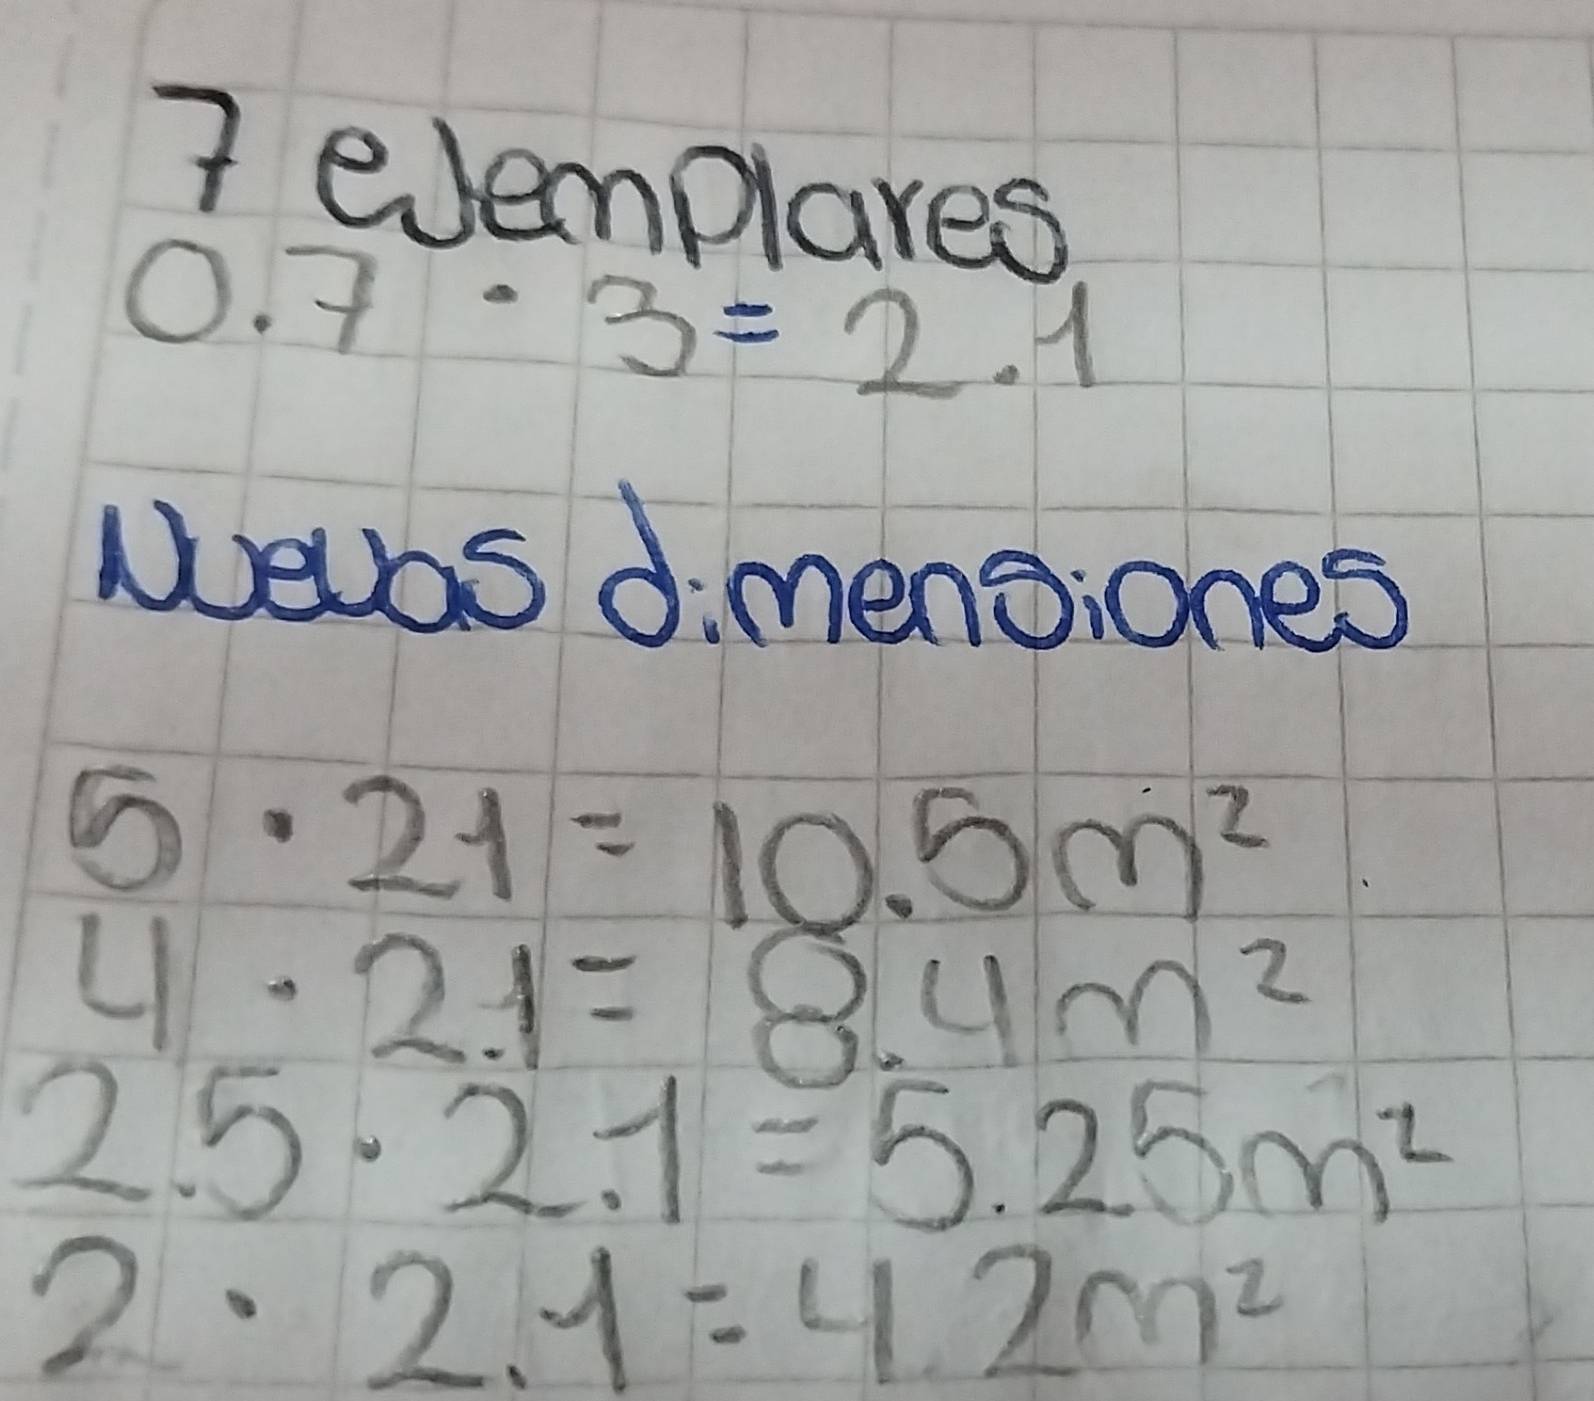 7 ejemplares
0.7 · 3 = 2.1
Nuevas dimensiones
5 · 21 = 10.5m²
4 · 2.1 = 8.4m²
2.5 · 2.1 = 5.25m²
2 · 2.1 = 4.2m²